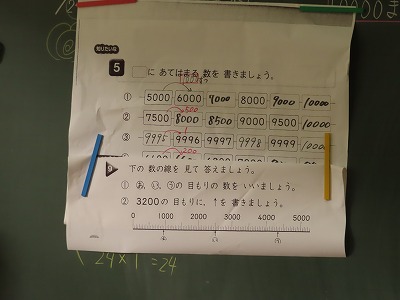 知りたいな
5 □に あてはまる 数を 書きましょう。
1000
① 5000 6000 7000 8000 9000 10000
500
② 7500 8000 8500 9000 9500 10000
1
③ 9995 9996 9997 9998 9999 10000
200
9 下の 数の線を 見て 答えましょう。
① あ、い、うの 目もりの 数を いいましょう。
② 3200の 目もりに、↑を 書きましょう。
0 1000 2000 3000 4000 5000
24×1=24